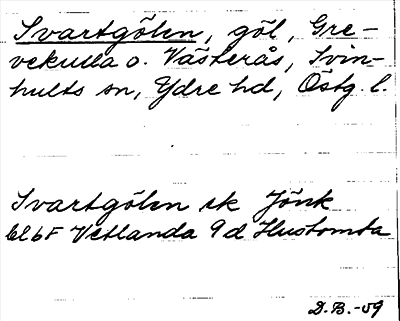 Svartgölen, göl, Gre-
vekulla o. Västerås, Svin-
hults sn, Ydre hd, Östg. l.
Svartgölen sk Jönk
bl 6F Vetlanda 9d Hustomta
D.B.-09